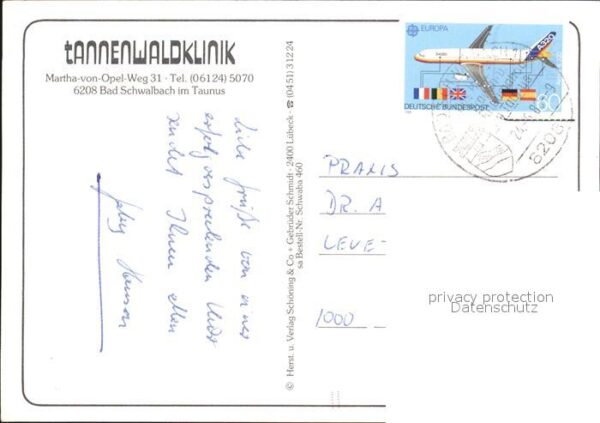 tANNENWALDKLINIK
Martha-von-Opel-Weg 31 · Tel. (06124) 5070
6208 Bad Schwalbach im Taunus
EUROPA
A320
DEUTSCHE BUNDESPOST
60
6208
Liebe Grüße von einer
erfolgversprechenden Kur
sendet Ihnen allen
© Herst. u. Verlag Schöning & Co + Gebrüder Schmidt · 2400 Lübeck · ☎ (04 51) 3 12 24
sa Bestell-Nr. Schwaba 460
PRAXIS
DR. A
LEVE-
1000
privacy protection
Datenschutz